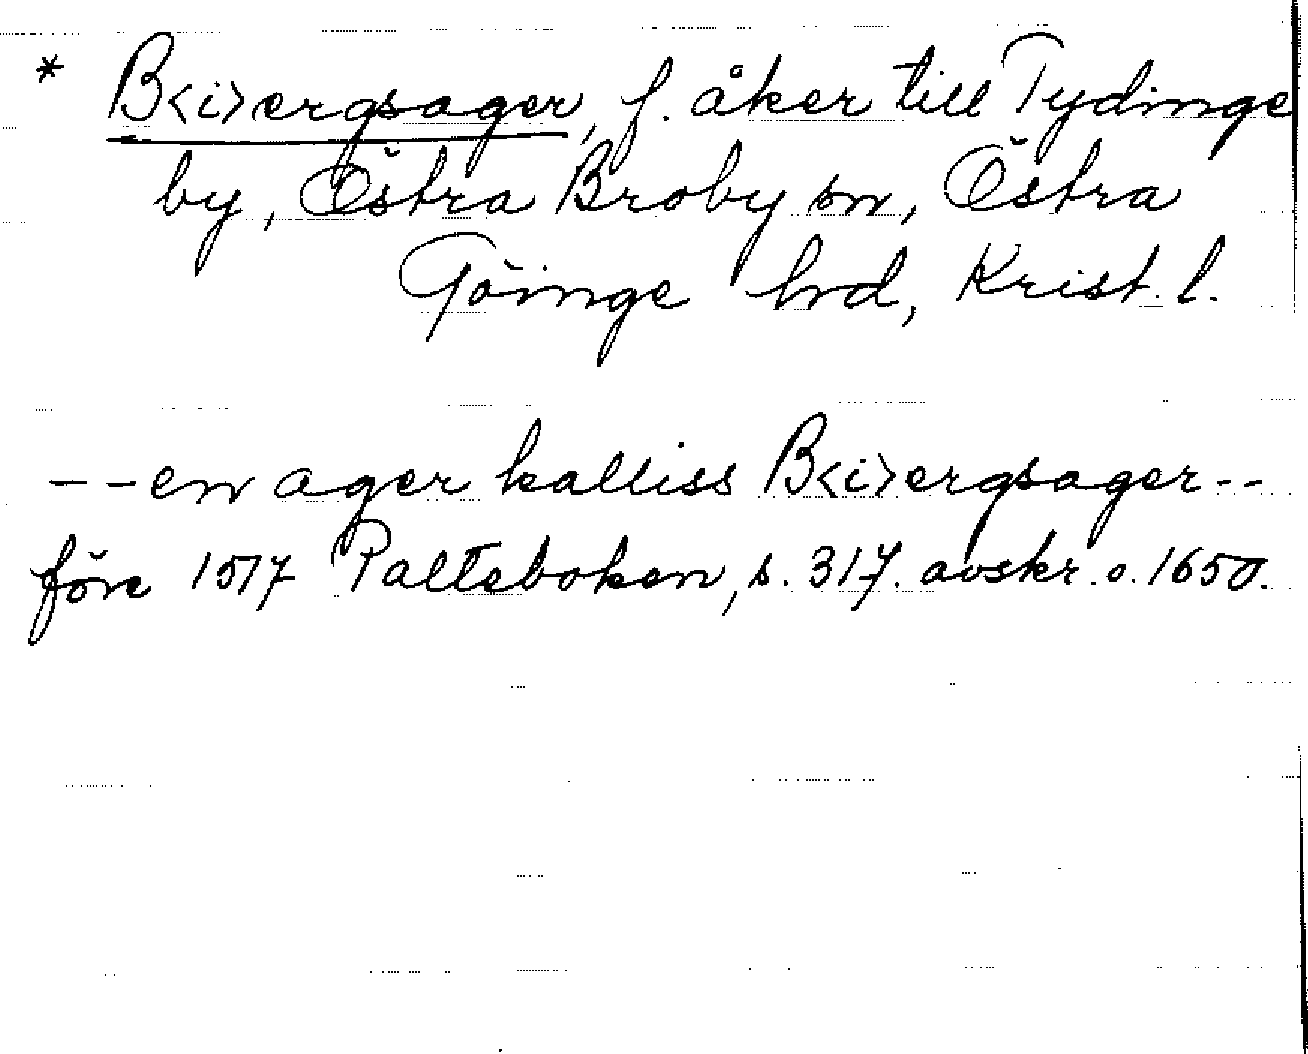 * B<i>ergsager, f. åker till Tydinge
by, Östra Broby sn, Östra
Göinge hrd, Krist. l.
-- en ager kalliss B<i>ergsager --
före 1517 Palteboken, s. 317. avskr. o. 1650.